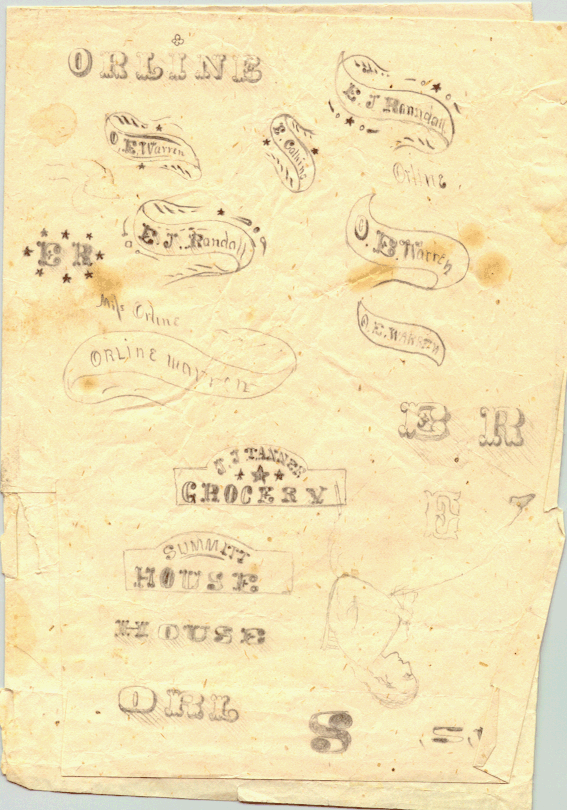 ORLINE
E. J. Ramsdall
O. E. Warren
E. Collins
Orline
E. J. Randall
O. E. Warren
E R
Miss Orline
O. E. WARREN
ORLINE WARREN
E R
J TANNER
GROCERY
E
SUMMITT
HOUSE
HOUSE
ORL
S
S